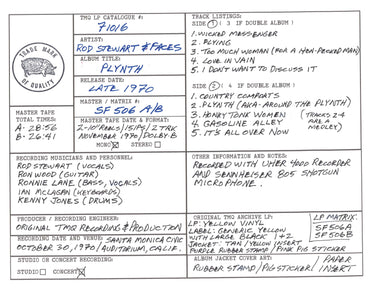 TRADE MARK
OF QUALITY
TMQ LP CATALOGUE #:
71016
ARTIST:
ROD STEWART & FACES
ALBUM TITLE:
PLYNTH
RELEASE DATE:
LATE 1970
MASTER / MATRIX #:
SF 506 A/B
MASTER TAPE
TOTAL TIMES:
A- 28:56
B- 26:41
MASTER TAPE DATE & FORMAT:
2-10" REELS/15 IPS/2 TRK
NOVEMBER 1970/DOLBY-B
MONO STEREO
TRACK LISTINGS:
SIDE 1 ( 3 IF DOUBLE ALBUM )
1. WICKED MESSENGER
2. FLYING
3. TOO MUCH WOMAN (FOR A HEN-PECKED MAN)
4. LOVE IN VAIN
5. I DON'T WANT TO DISCUSS IT
SIDE 2 ( 4 IF DOUBLE ALBUM )
1. COUNTRY COMFORTS
2. PLYNTH (AKA-AROUND THE PLYNTH)
3. HONKY TONK WOMEN (TRACKS 2-4
4. GASOLINE ALLEY ARE A
5. IT'S ALL OVER NOW MEDLEY)
RECORDING MUSICIANS AND PERSONNEL:
ROD STEWART (VOCALS)
RON WOOD (GUITAR)
RONNIE LANE (BASS, VOCALS)
IAN MCLAGAN (KEYBOARDS)
KENNY JONES (DRUMS)
OTHER INFORMATION AND NOTES:
RECORDED WITH UHER 4000 RECORDER
AND SENNHEISER 805 SHOTGUN
MICROPHONE.
PRODUCER / RECORDING ENGINEER:
ORIGINAL TMQ RECORDING & PRODUCTION
RECORDING DATE AND VENUE: SANTA MONICA CIVIC
OCTOBER 30, 1970/AUDITORIUM, CALIF.
STUDIO OR CONCERT RECORDING:
STUDIO CONCERT
ORIGINAL TMQ ARCHIVE LP:
LP: YELLOW VINYL
LABEL: GENERIC YELLOW
WITH LARGE BLACK 1+2
JACKET: TAN/YELLOW INSERT
PURPLE RUBBER STAMP/PINK PIG STICKER
LP MATRIX:
SF506A
SF506B
ALBUM JACKET COVER ART:
RUBBER STAMP/PIG STICKER/PAPER INSERT